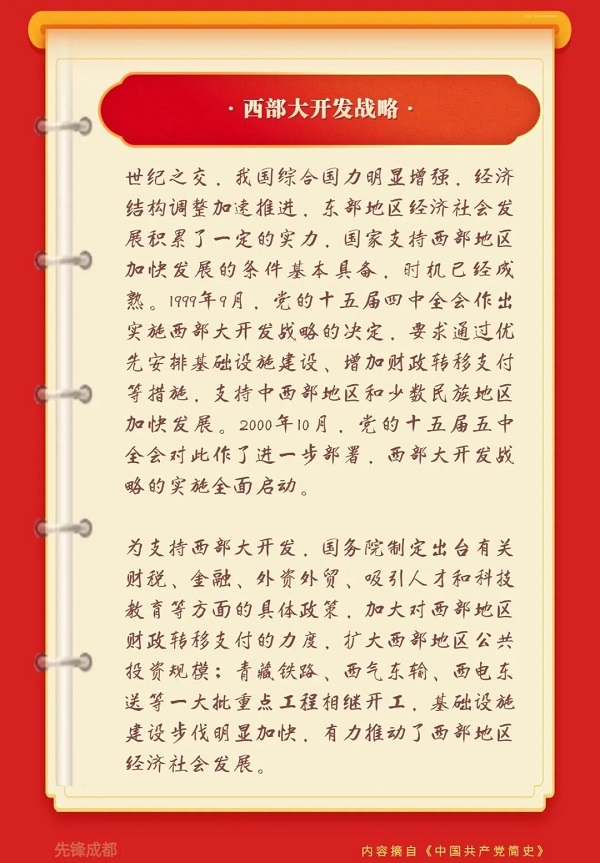 ·西部大开发战略·
世纪之交，我国综合国力明显增强，经济
结构调整加速推进，东部地区经济社会发
展积累了一定的实力，国家支持西部地区
加快发展的条件基本具备，时机已经成
熟。1999年9月，党的十五届四中全会作出
实施西部大开发战略的决定，要求通过优
先安排基础设施建设、增加财政转移支付
等措施，支持中西部地区和少数民族地区
加快发展。2000年10月，党的十五届五中
全会对此作了进一步部署，西部大开发战
略的实施全面启动。
为支持西部大开发，国务院制定出台有关
财税、金融、外资外贸、吸引人才和科技
教育等方面的具体政策，加大对西部地区
财政转移支付的力度，扩大西部地区公共
投资规模；青藏铁路、西气东输、西电东
送等一大批重点工程相继开工，基础设施
建设步伐明显加快，有力推动了西部地区
经济社会发展。
先锋成都
内容摘自《中国共产党简史》